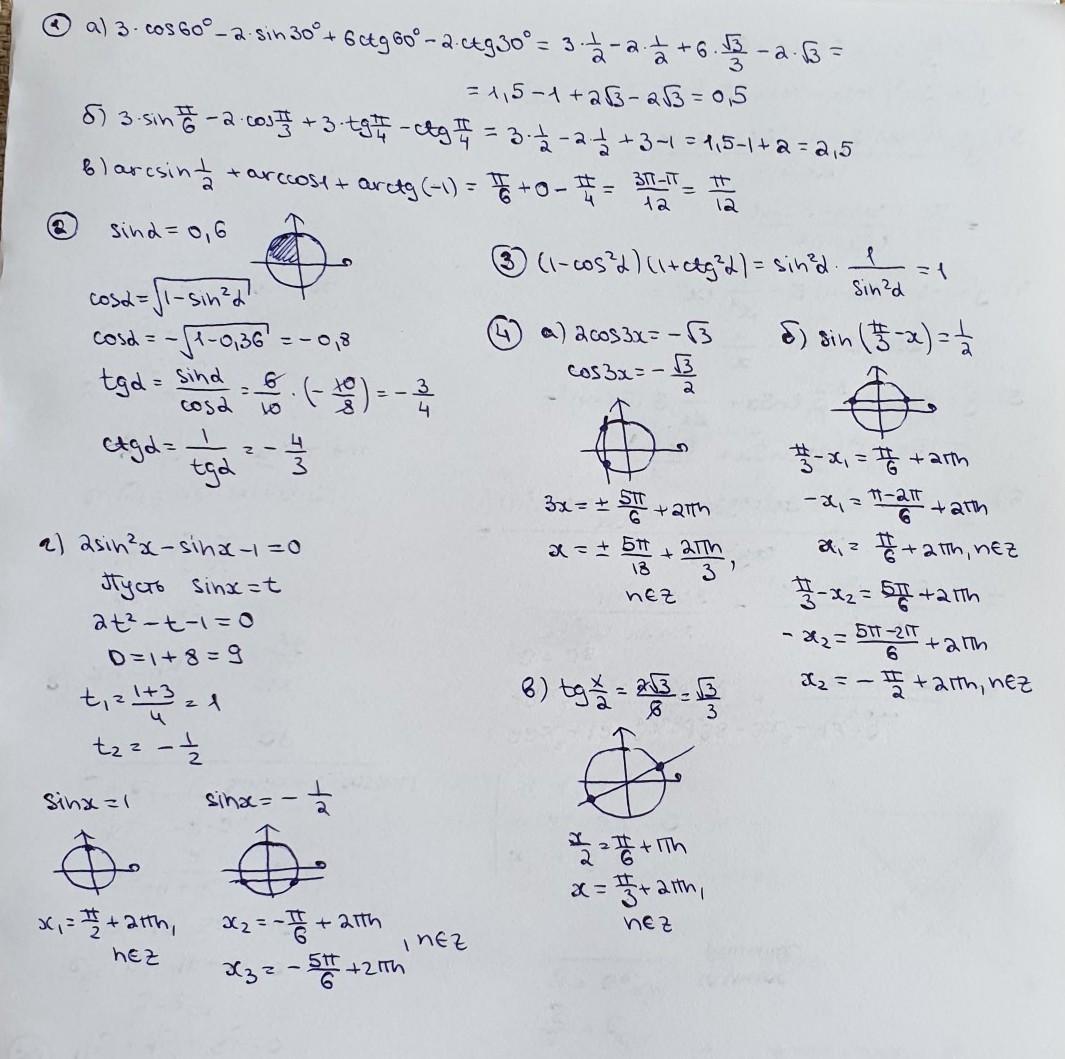 ① а) 3·cos60° − 2·sin30° + 6ctg60° − 2·ctg30° = 3·1/2 − 2·1/2 + 6·√3/3 − 2·√3 =
= 1,5 − 1 + 2√3 − 2√3 = 0,5
б) 3·sin π/6 − 2·cos π/3 + 3·tg π/4 − ctg π/4 = 3·1/2 − 2·1/2 + 3 − 1 = 1,5 − 1 + 2 = 2,5
в) arcsin 1/2 + arccos1 + arctg(−1) = π/6 + 0 − π/4 = (3π−π)/12 = π/12
② sinα = 0,6
cosα = √(1−sin²α)
cosα = −√(1−0,36) = −0,8
tgα = sinα/cosα = 6/10 · (−10/8) = −3/4
ctgα = 1/tgα = −4/3
③ (1−cos²α)(1+ctg²α) = sin²α · 1/sin²α = 1
④ а) 2cos3x = −√3
cos3x = −√3/2
3x = ± 5π/6 + 2πn
x = ± 5π/18 + 2πn/3,
n∈Z
б) sin(π/3 − x) = 1/2
π/3 − x₁ = π/6 + 2πn
−x₁ = (π−2π)/6 + 2πn
x₁ = π/6 + 2πn, n∈Z
π/3 − x₂ = 5π/6 + 2πn
−x₂ = (5π−2π)/6 + 2πn
x₂ = −π/2 + 2πn, n∈Z
в) tg x/2 = 2√3/6 = √3/3
x/2 = π/6 + πn
x = π/3 + 2πn,
n∈Z
г) 2sin²x − sinx − 1 = 0
Пусть sinx = t
2t² − t − 1 = 0
D = 1 + 8 = 9
t₁ = (1+3)/4 = 1
t₂ = −1/2
sinx = 1
x₁ = π/2 + 2πn,
n∈Z
sinx = −1/2
x₂ = −π/6 + 2πn
, n∈Z
x₃ = −5π/6 + 2πn